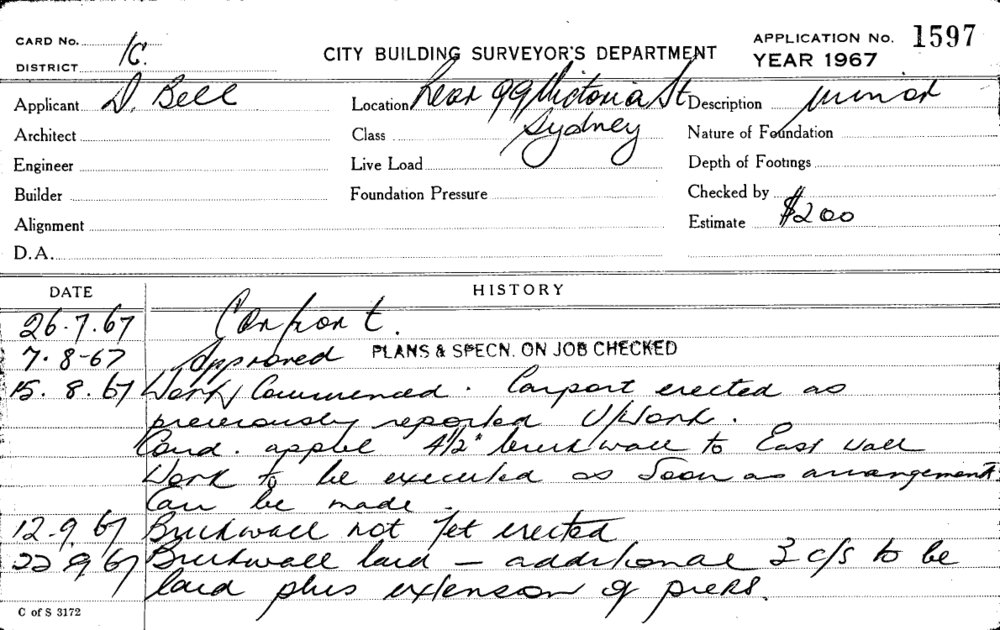 CARD No. 1C.
DISTRICT
CITY BUILDING SURVEYOR'S DEPARTMENT
APPLICATION No. 1597
YEAR 1967
Applicant D. Bell
Location Rear 99 Victoria St
Sydney
Description minor
Architect
Class
Nature of Foundation
Engineer
Live Load
Depth of Footings
Builder
Foundation Pressure
Checked by
Alignment
Estimate $200
D.A.
DATE HISTORY
26.7.67 Carport.
7.8-67 Approved PLANS & SPECN. ON JOB CHECKED
15.8.67 Work Commenced. Carport erected as
previously reported U/Work.
Cond. appl 4½" brick wall to East wall
Work to be executed as soon as arrangement
Can be made.
12.9.67 Brickwall not yet erected
22.9.67 Brickwall laid — additional 3 c/s to be
laid plus extension of piers.
C of S 3172